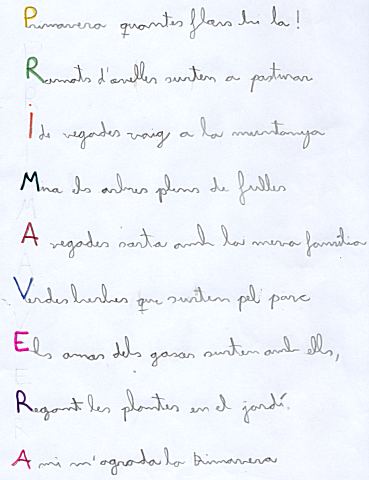 Primavera quantes flors hi ha!
Ramats d'ovelles surten a pasturar
I de vegades vaig a la muntanya
Mna els arbres plens de fulles
A vegades sorta amb la meva família
Verdes herbes que surten pel parc
Els amas dels gosas surten amb ells,
Regant les plantes en el jardí.
A mi m'agrada la Primavera